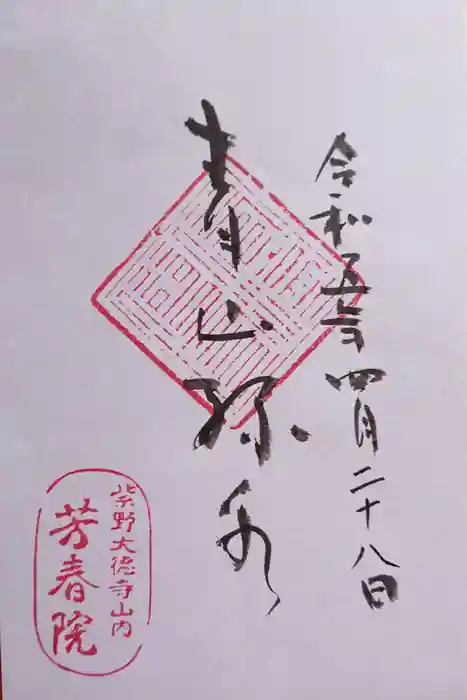 令和五年四月二十八日
青山緑水
紫野大徳寺山内
芳春院